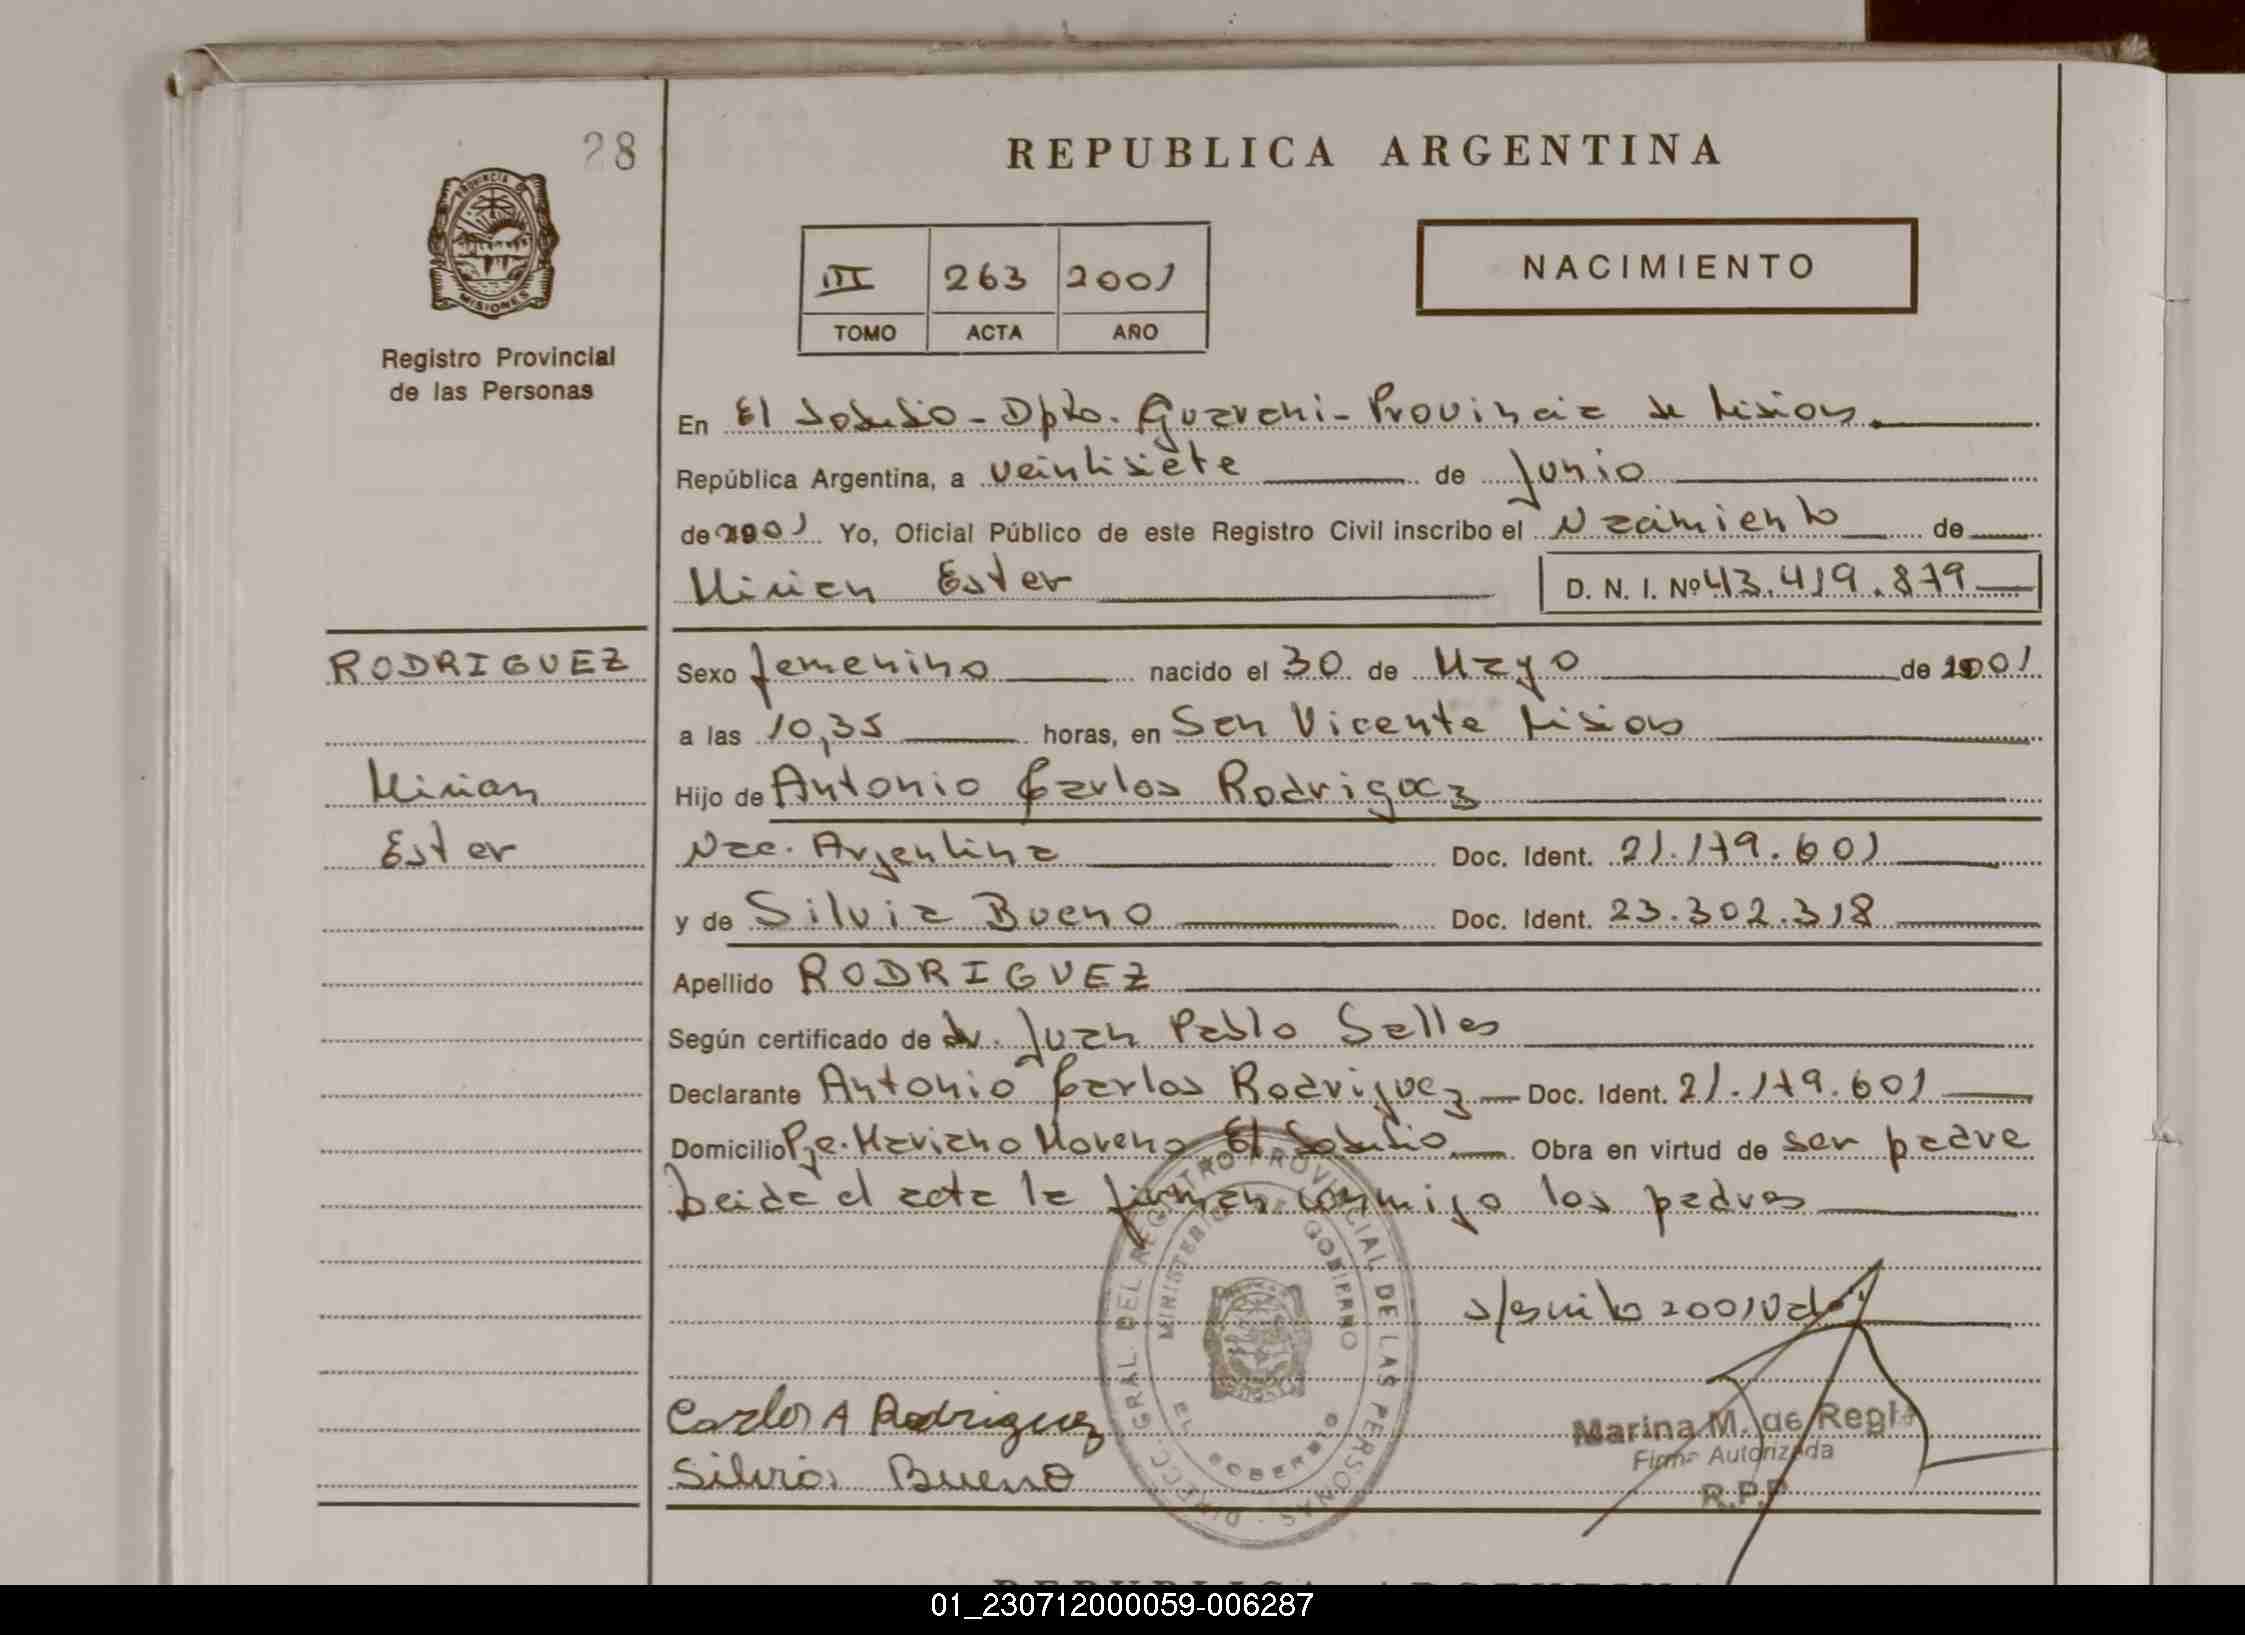 28
REPUBLICA ARGENTINA
PROVINCIA DE
MISIONES
Registro Provincial
de las Personas
III 263 2001
TOMO ACTA AÑO
NACIMIENTO
En El Soberbio - Dpto. Guarani - Provincia de Misiones
República Argentina, a veintisiete de Junio
de 2001 Yo, Oficial Público de este Registro Civil inscribo el Nacimiento de
Mirian Ester D. N. I. Nº 43.419.879
RODRIGUEZ
Sexo femenino nacido el 30 de Mayo de 2001
a las 10,35 horas, en San Vicente Misiones
Mirian
Hijo de Antonio Carlos Rodriguez
Ester
Nac. Argentina Doc. Ident. 21.179.601
y de Silvia Bueno Doc. Ident. 23.302.318
Apellido RODRIGUEZ
Según certificado de dr. Juan Pablo Salles
Declarante Antonio Carlos Rodriguez Doc. Ident. 21.179.601
Domicilio Pje. Mariano Moreno El Soberbio Obra en virtud de ser padre
Leida el acta la firman conmigo los padres
s/escrito 2001 Vale
DIRECC. GRAL. DEL REGISTRO PROVINCIAL DE LAS PERSONAS
MINISTERIO DE GOBIERNO
EL SOBERBIO
Carlos A Rodriguez
Silvia Bueno
Marina M. de Regl
Firma Autorizada
R.P.P
REPUBLICA ARGENTINA
01_230712000059-006287